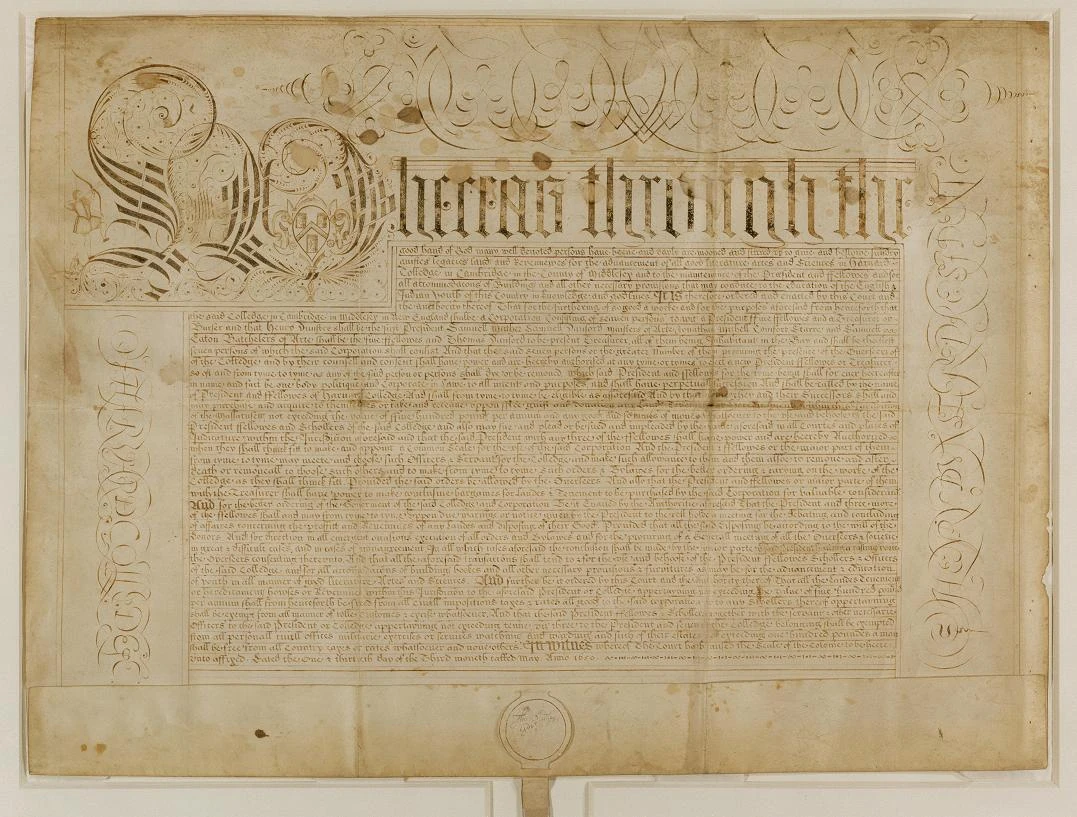 Whereas through the
good hand of God many well devoted persons have beene and dayly are mooved and stirred up to give and bestowe sundry
guiftes legacies lands and Revennewes for the advancement of all good literature artes and Sciences in Harvard
Colledge in Cambridge in the County of Middlesex and to the maintenance of the President and ffellowes and for
all accommodacons of Buildings and all other necessary provisions that may conduce to the education of the English &
Indian Youth of this Country in knowledge and godlines It is therefore ordered and enacted by this Court and
the authoritie thereof that for the furthering of so good a worke and for the purposes aforesaid from henceforth that
the said Colledge in Cambridge in Middlesex in New England shalbe a Corporation Consisting of seaven persons to wit a President ffive ffellowes and a Treasurer or
Burser and that Henry Dunster shall be the first President Samuell Mather Samuell Danford masters of Arte Jonathan Michell Comfort Starre and Samuell
Eaton Batchelers of Arte shall be the five ffellowes and Thomas Danford to be present Treasurer all of them being Inhabitants in the Bay and shall be the first
seven persons of which the said Corporation shall consist And that the said seven persons or the greater Number of them procuring the presence of the Overseers of
the Colledge and by their counsell and consent shall have power and are hereby authorised at any tyme or tymes to elect new President ffellowes or Treasurer
so oft and from tyme to tyme as any of the said person or persons shall dye or be removed which said President and ffellowes for the tyme being shall for ever hereafter
in name and fact be one body politique and Corporate in Lawe to all intents and purposes and shall have perpetuall succession And shall be called by the name
of President and ffellowes of Harvard Colledge And shall from tyme to tyme be eligible as aforesaid And by that they and their Successors shall and
may purchase and acquire to themselves or take and receive uppon free guift and donation any Lands
of the Massachusetts not exceeding the five hundred pounds per annum and any goods and sommes of money whatsoever to the use and behoofe of the said
President ffellowes and Schollers of the said Colledge and also may sue and plead or be sued and impleaded by the name aforesaid in all Courtes and places of
Judicature within the Jurisdiction aforesaid and that the said President with any three of the ffellowes shall have power and are hereby Authorized
when they shall thinke fitt to make and appoint a Common Seale for the use of the said Corporation And the President & ffellowes or the major part of them
from tyme to tyme may meete and choose such Officers & Servants for the Colledge and make such allowance to them and them also to remove and after
death or removeall to choose such others and to make from tyme to tyme such orders & Bylawes for the better ordering & carying on the worke of the
Colledge as they shall thinke fitt Provided the said orders be allowed by the Overseers And also that the President and ffellowes or major parte of them
with the Treasurer shall have power to make conclusive bargaines for Landes & Tenements to be purchased by the said Corporation for valuable consideracon
And for the better ordering of the Government of the said Colledge and Corporation Be it Enacted by the Authoritie aforesaid That the President and three more
of the ffellowes shall and may from tyme to tyme uppon due warning or notice given by the President to the rest hold a meeting for the debating and concluding
of affaires concerning the profitts and Revennues of any Landes and disposing of their Goods Provided that all the said disposings be according to the will of the
donors And for direction in all emergent occasions execution of all orders and Bylawes and for the procuring of a Generall meeting of all the Overseers & Societie
in great & difficult cases and in cases of nonagreement In all which cases aforesaid the conclusion shall be made by the major parte the said President having a casting voice
the Overseers consenting thereunto And that all the aforesaid transactions shall tend to & for the use and behoofe of the President ffellowes Schollers & Officers
of the said Colledge and for all accommodacons of building bookes and all other necessary provisions & furnitures as may be for the advancement & education
of youth in all manner of good literature Artes and Sciences And further be it ordered by this Court and the Authority thereof That all the Landes Tenements
or hereditaments houses or Revennues within this Jurisdiction to the aforesaid President or Colledge appertayning not exceeding the value of five hundred poundes
per annum shall from henceforth be freed from all Civill impositions taxes & rates all goods to the said Corporation or to any Schollers thereof appertayning
shall be exempt from all manner of tolle Customes & excise whatsoever And that the said President ffellowes & Schollers together with the servants & other necessary
Officers to the said President or Colledge appertayning not exceeding tenne viz three to the President and seven to the Colledge belonging shall be exempted
from all personall Civill offices militarie exercises or services watchings and wardings and such of their estates not exceeding one hundred pounds a man
shall be free from all Country taxes or rates whatsoever and none others In witnes whereof The Court hath caused the Seale of the Colonie to be heere
unto affixed Dated the One & thirtieth day of the Third moneth called May Anno 1650